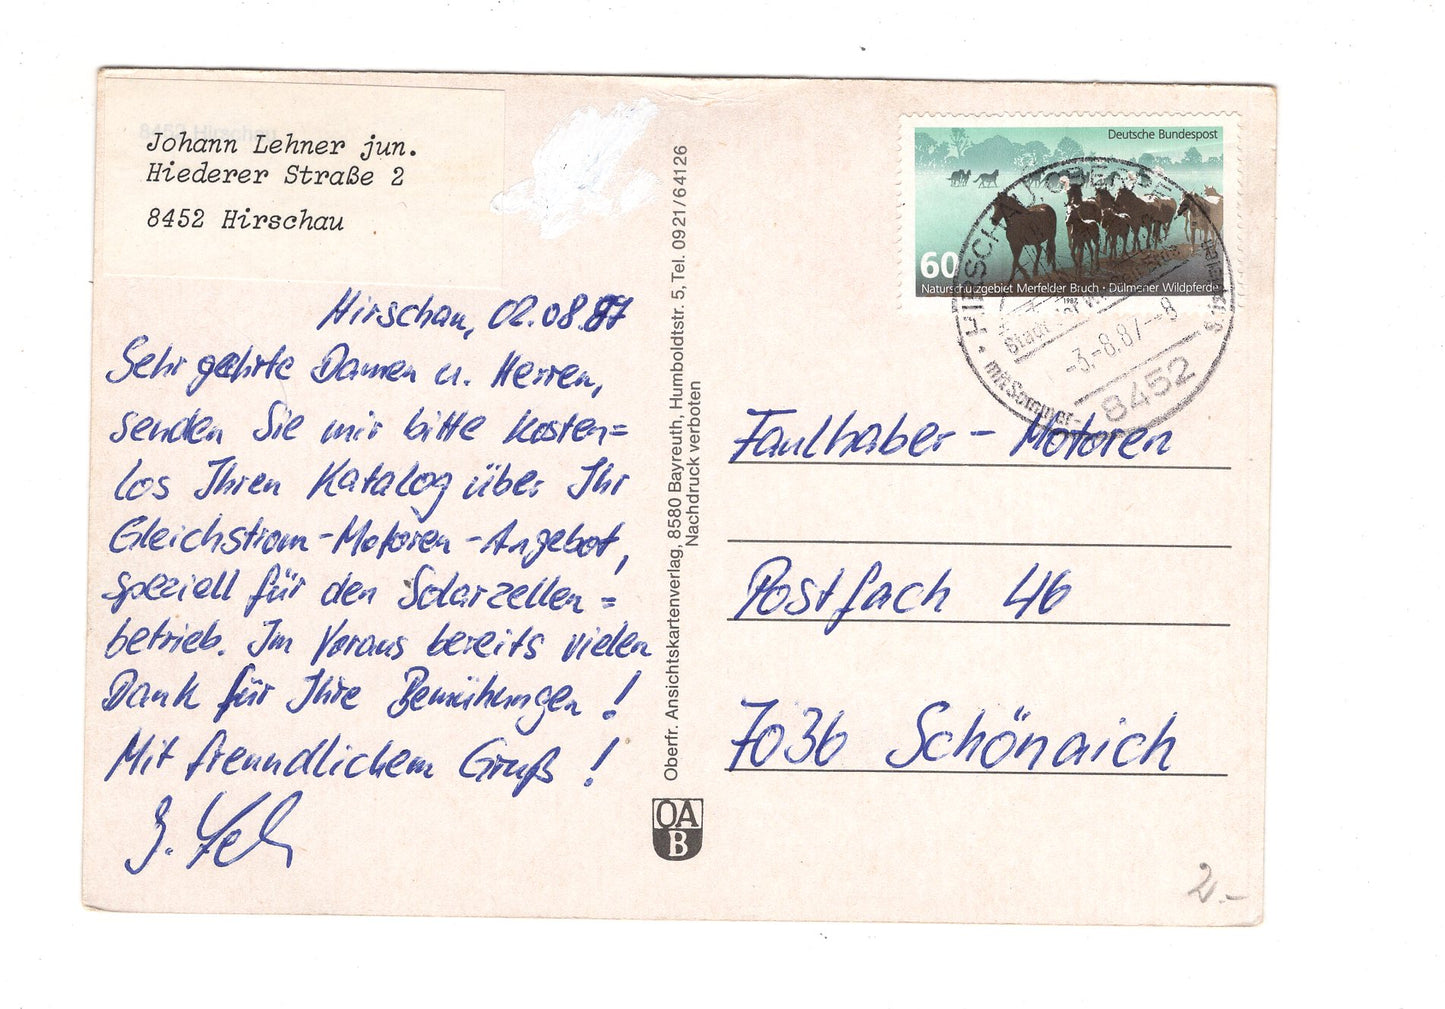 Johann Lehner jun.
Hiederer Straße 2
8452 Hirschau
Hirschau, 02.08.87
Sehr geehrte Damen u. Herren,
senden Sie mir bitte kosten=
los Ihren Katalog über Ihr
Gleichstrom-Motoren-Angebot,
speziell für den Solarzellen=
betrieb. Im Voraus bereits vielen
Dank für Ihre Bemühungen!
Mit freundlichem Gruß!
Oberfr. Ansichtskartenverlag, 8580 Bayreuth, Humboldtstr. 5, Tel. 0921/64126
Nachdruck verboten
OA
B
Deutsche Bundespost
60
Naturschutzgebiet Merfelder Bruch · Dülmener Wildpferde
HIRSCHAU, OBERPF
Stadt der
-3.-8.87--8
8452
mit Sommer-
Faulhaber-Motoren
Postfach 46
7036 Schönaich
2.-